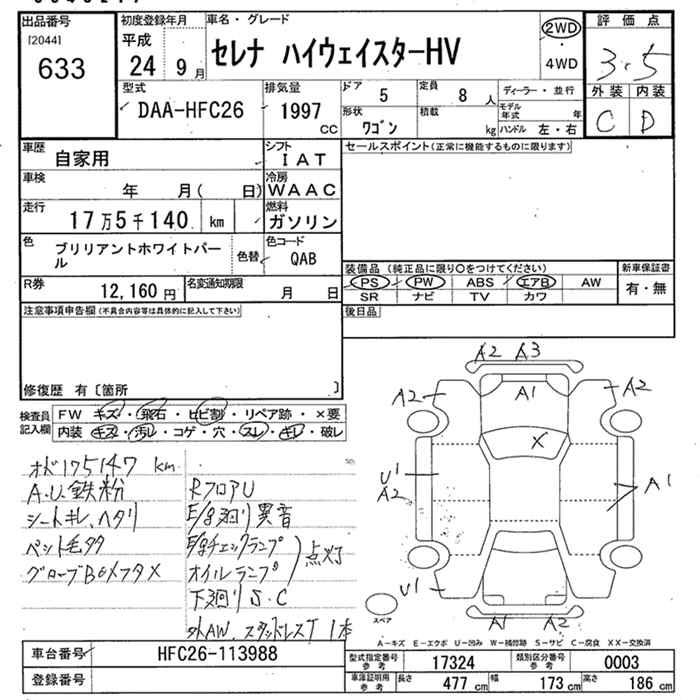 出品番号
[2044]
633
初度登録年月
平成
24 9 月
車名・グレード
セレナ ハイウェイスターHV
2WD
・
4WD
評価点
3.5
外装 内装
C D
型式
DAA-HFC26
排気量
1997
cc
ドア
5
定員
8 人
形状
ワゴン
積載
kg
ディーラー・並行
モデル年式 年
ハンドル 左・右
車歴
自家用
シフト
IAT
車検
年 月( 日)
冷房
WAAC
走行
17万5千140 km
燃料
ガソリン
色
ブリリアントホワイトパール
色替
色コード
QAB
R券
12,160 円
名変通知期限
月 日
セールスポイント(正常に機能するものに限ります)
装備品 (純正品に限り○をつけてください)
PS PW ABS エアB AW
SR ナビ TV カワ
新車保証書
有・無
後日品
注意事項申告欄(不具合内容等は具体的に記入して下さい)
修復歴 有〔箇所 〕
検査員記入欄
FW キズ・飛石・ヒビ割・リペア跡・×要
内装 キズ・汚レ・コゲ・穴・スレ・キレ・破レ
オド175147 km
A.U.鉄粉
シートキレ、ヘタリ
ペット毛タタ
グローブBOXフタX
RフロアU
E/g廻り異音
E/gチェックランプ
オイルランプ
点灯
下廻りS.C
外AW、スタッドレスT 1本
A2 A3
A2 A1 A2
X
U1
A2
A1
U1
A1 A2
スペア
A-キズ E-エクボ U-凹み W-補修跡 S-サビ C-腐食 XX-交換済
車台番号
HFC26-113988
登録番号
型式指定番号
参考
17324
類別区分番号
参考
0003
車庫証明用
参考
長さ
477 cm
幅
173 cm
高さ
186 cm